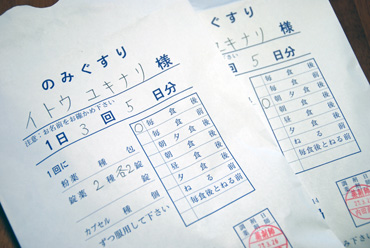 のみぐすり
イトウ ユキナリ 様
注意:お名前をお確かめ下さい
1日 3 回 5 日分
1回に
粉薬 種 包
錠薬 2種 各2錠
カプセル 種 個
ずつ服用して下さい
○ 毎食後
毎食前
朝食後
朝夕食後
昼食後
夕食後
ねる前
毎食後とねる前
調剤月日
ユキナリ 様
回 5 日分
○ 毎食後
毎食前
朝食後
朝夕食後
昼食後
夕食後
ねる前
毎食後とねる前
調剤月日